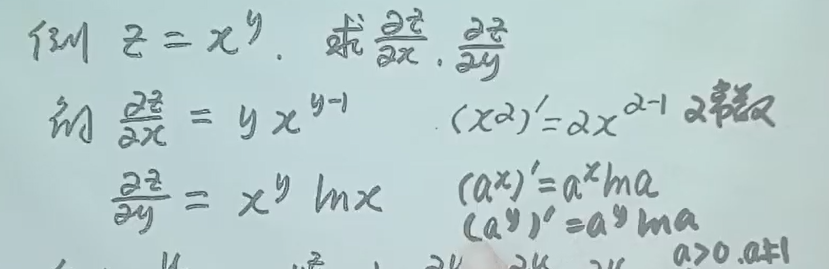 例 z = x^y. 求 ∂z/∂x . ∂z/∂y
解 ∂z/∂x = y x^{y-1} (x^α)' = αx^{α-1} α常数
∂z/∂y = x^y ln x (a^x)' = a^x ln a
(a^y)' = a^y ln a
a>0 . a≠1